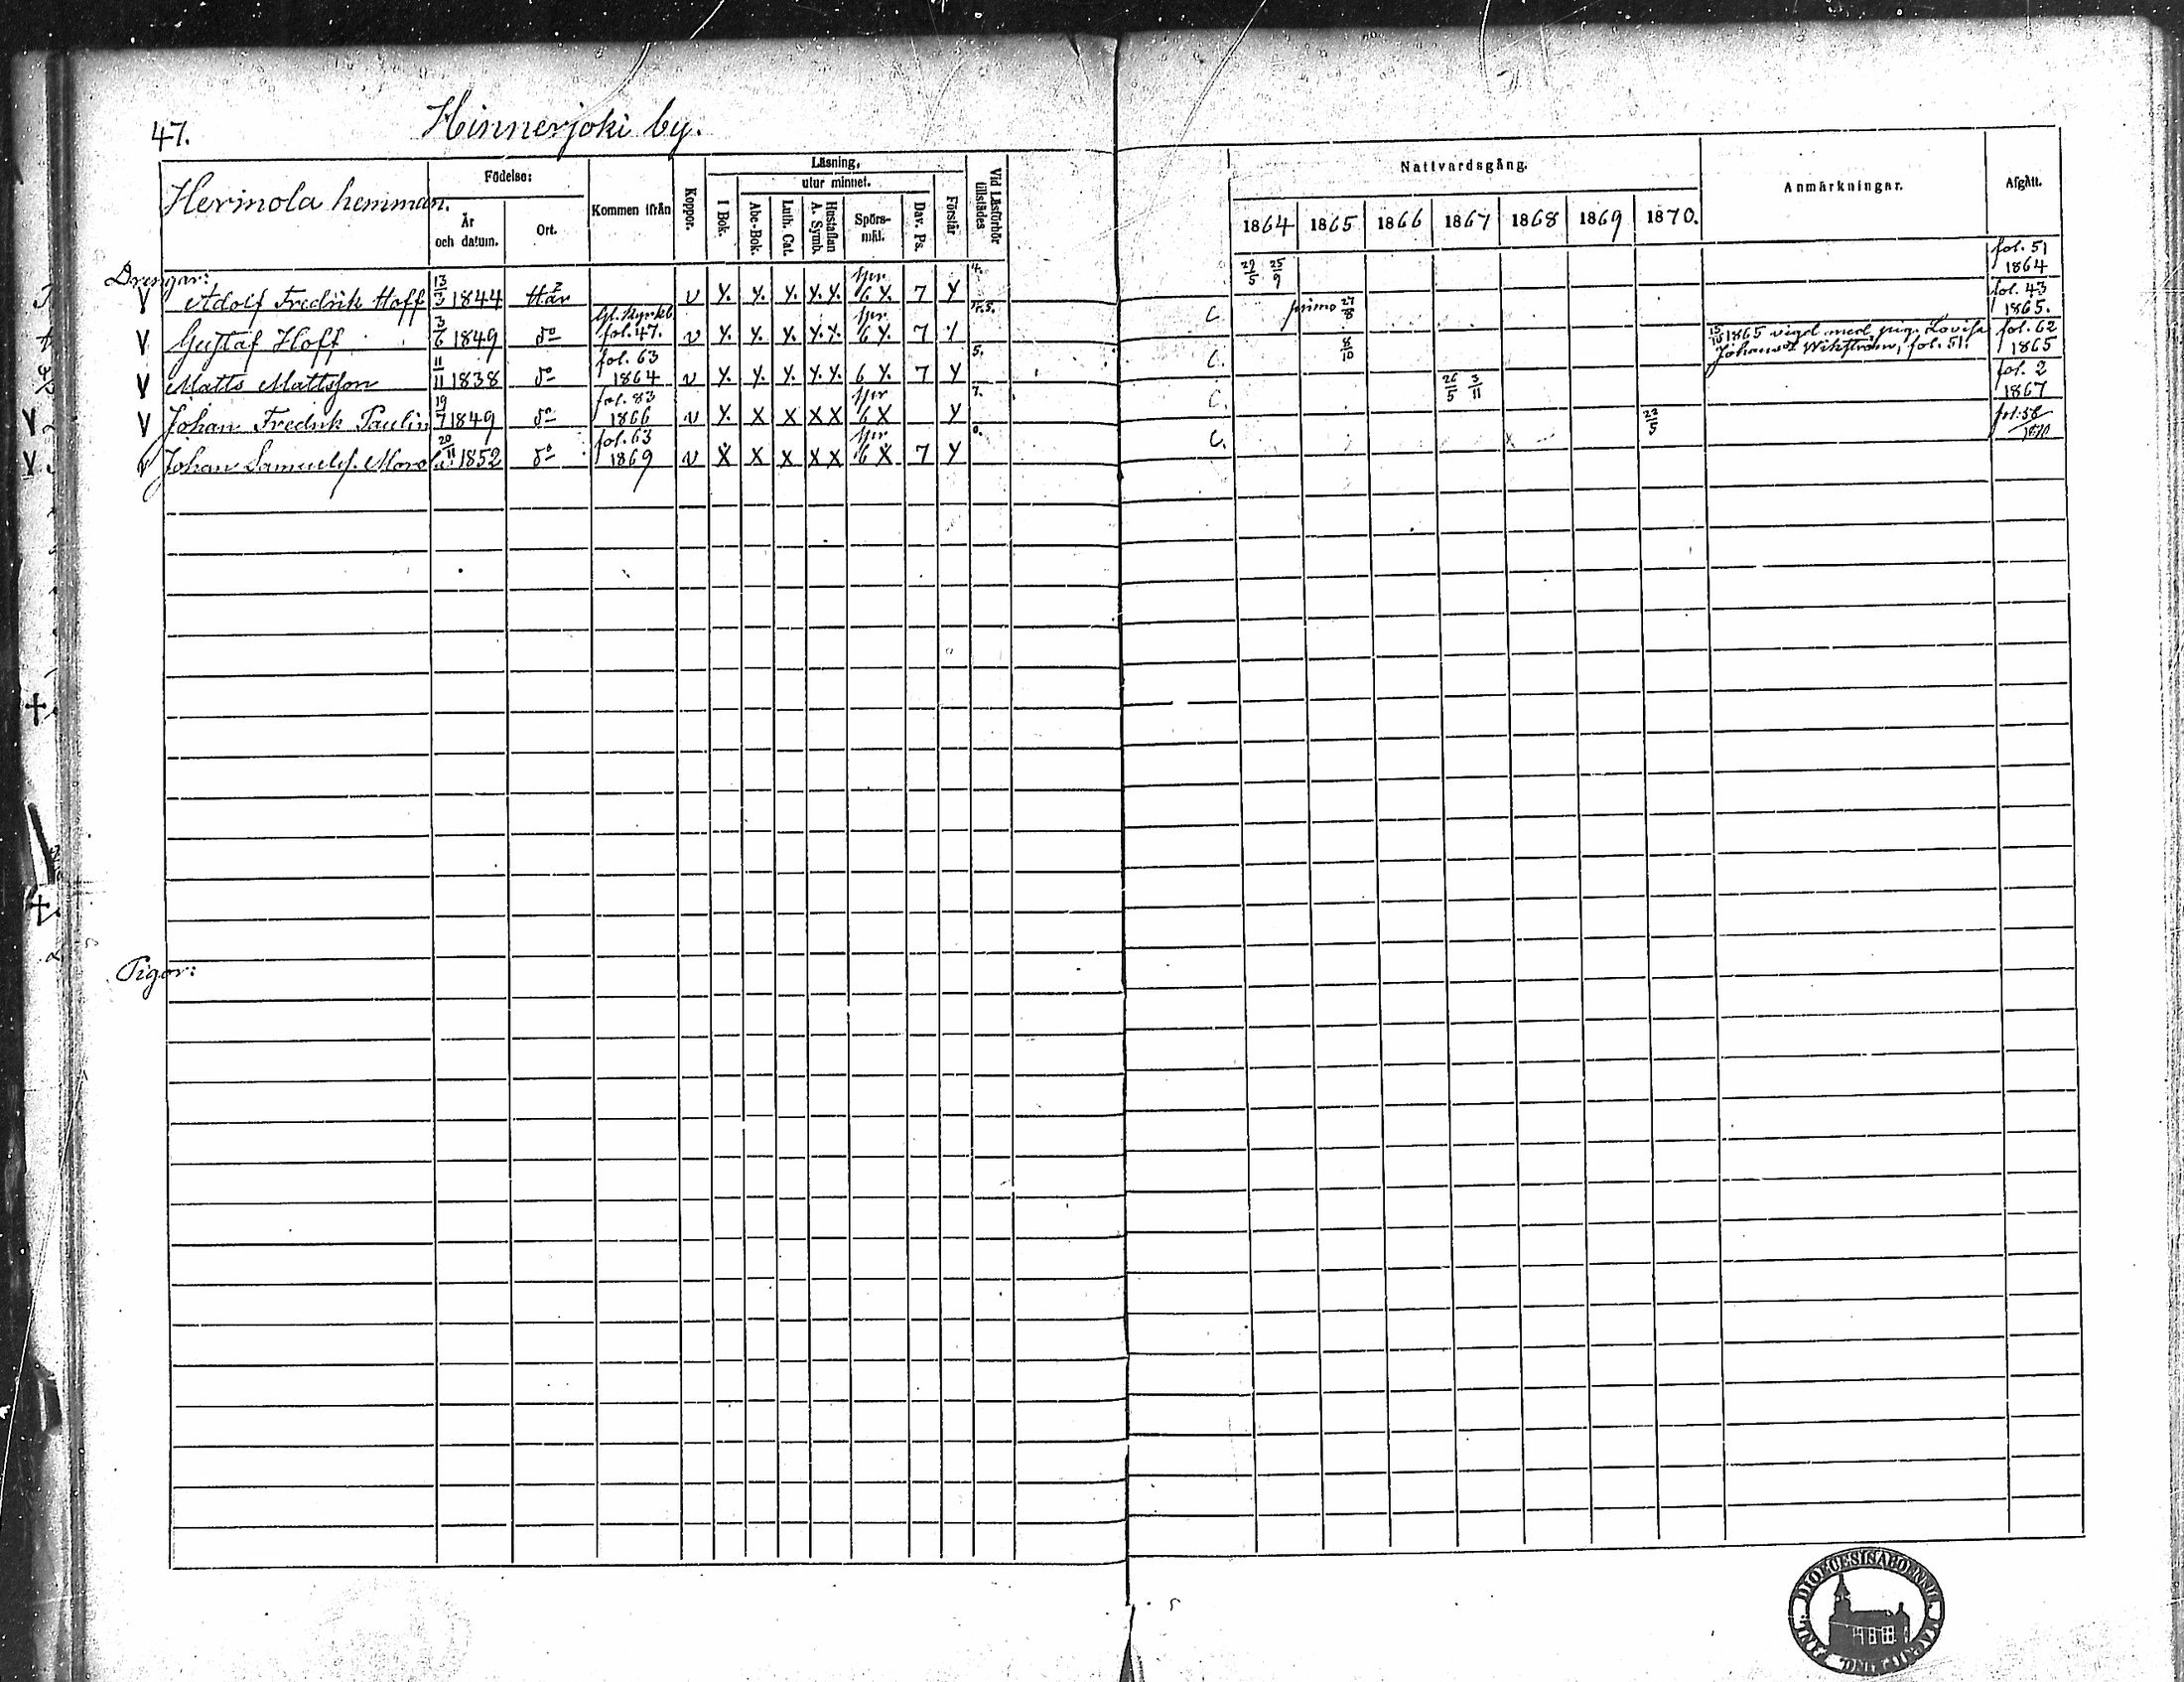 47. Hinnerjoki by.
Herinola hemman.
Födelse:
År och datum.
Ort.
Kommen ifrån
Koppor.
Läsning,
utur minnet.
I Bok.
Abc-Bok.
Luth. Cat.
Hustaflan A. Symb.
Spörsmål.
Dav. Ps.
Förstår
Vid Läsförhör tillstädes
Nattvardsgång.
1864 1865 1866 1867 1868 1869 1870.
Anmärkningar.
Afgått.
Drengar:
V Adolf Fredrik Hoff 13/3 1844 Här v Y. Y. Y. Y. Y. spr 6 Y. 7 Y 4. 29/5 25/9 fol. 51 1864
V Gustaf Hoff 3/6 1849 do Gl. Kyrkb. fol. 47. v Y. Y. Y. Y. Y. spr 6 Y. 7 Y C. primo 27/8 fol. 43 1865.
V Matts Mattsson 11/11 1838 do fol. 63 1864 v Y. Y. Y. Y. Y. 6 Y. 7 Y 5. C. 8/10 15/10 1865 vigd med pig. Lovisa Johansd. Wikström, fol. 51. fol. 62 1865
V Johan Fredrik Paulin 19/7 1849 do fol. 83 1866 v Y. X X X X spr 6 X Y 7. C. 26/5 3/11 fol. 2 1867
V Johan Samuelsf. Moro 20/11 1852 do fol. 63 1869 v X X X X X spr 6 X 7 Y 0. C. 22/5 fol. 58 1870
Pigor: